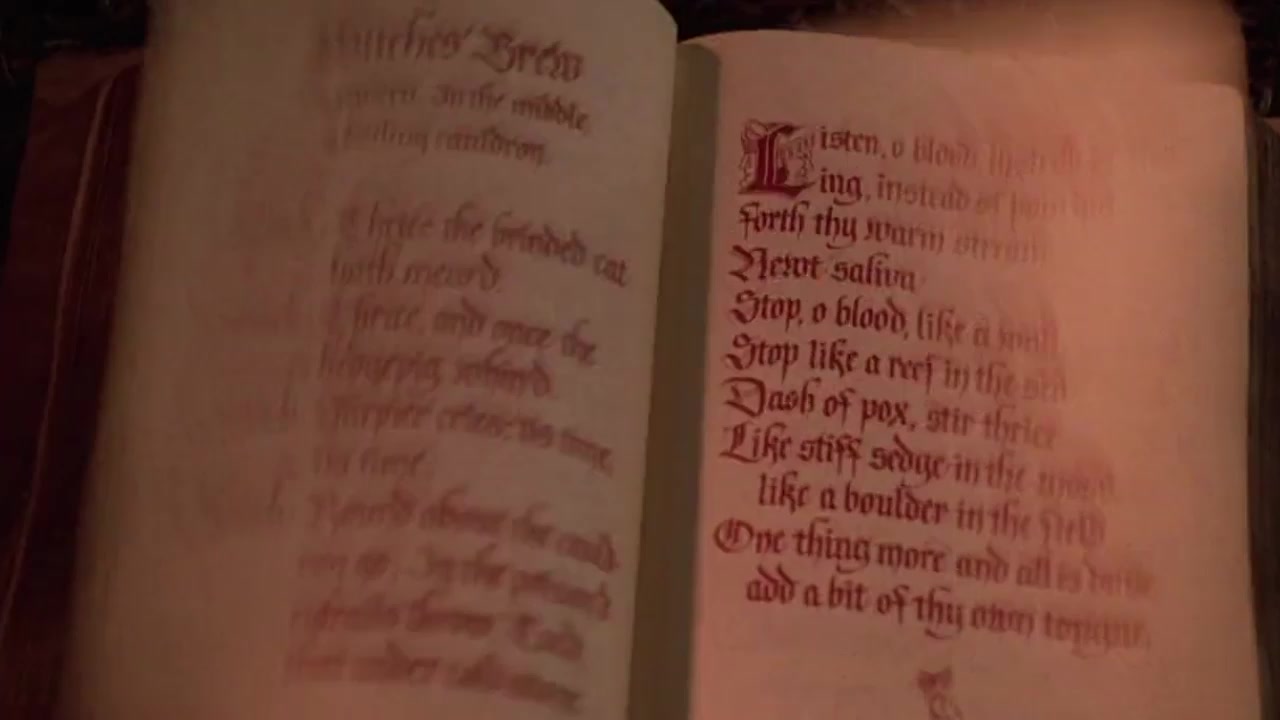 Witches' Brew
In the middle,
boiling cauldron.
Thrice the brinded cat
hath mew'd.
Thrice, and once the
hedgepig whin'd.
Harpier cries: 'tis time,
'tis time.
Round about the cauld
ron go; In the poison'd
entrails throw. Toad,
that under cold stone,
Listen, o blood
ing, instead of
forth thy warm stream
Newt saliva
Stop, o blood, like a wall
Stop like a reef in the sea
Dash of pox, stir thrice
Like stiff sedge in the
like a boulder in the field
One thing more and all is
add a bit of thy own tongue.